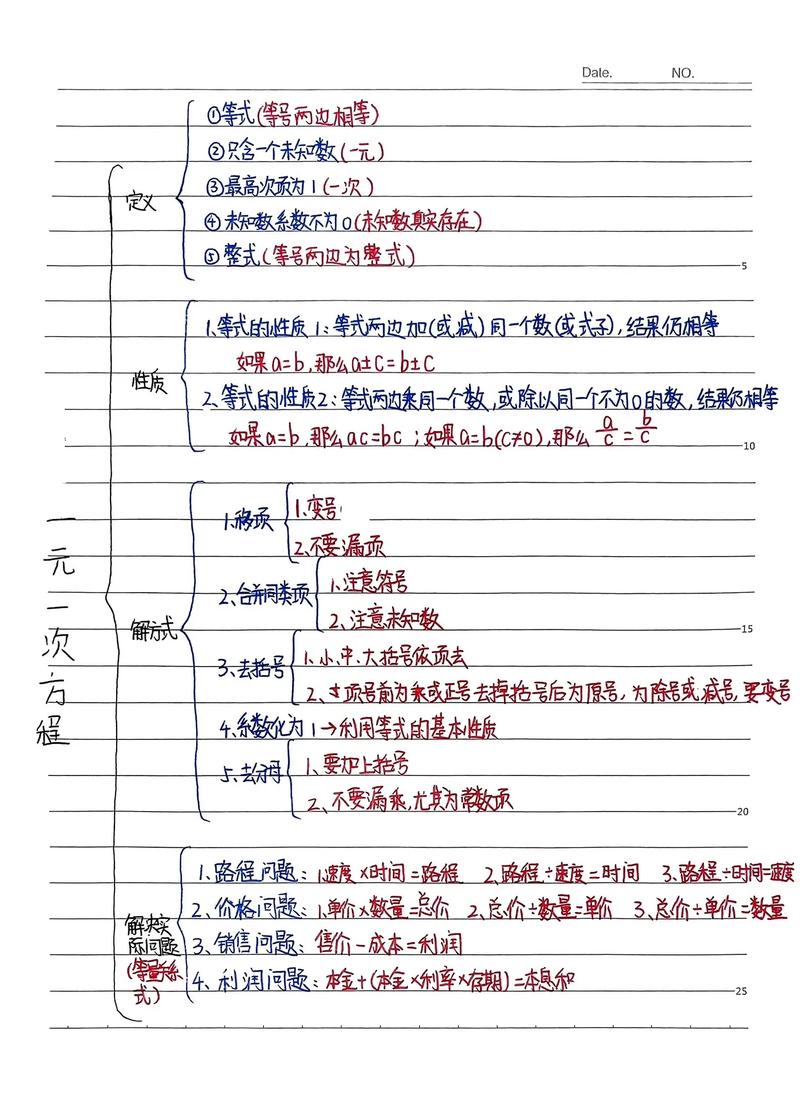 Date. NO.
①等式(等号两边相等)
②只含一个未知数(一元)
③最高次项为1(一次)
④未知数系数不为0(未知数真实存在)
⑤整式(等号两边为整式)
定义
5
1.等式的性质1:等式两边加(或减)同一个数(或式子),结果仍相等
如果a=b,那么a±c=b±c
性质
2.等式的性质2:等式两边乘同一个数,或除以同一个不为0的数,结果仍相等
如果a=b,那么ac=bc;如果a=b(c≠0),那么a/c=b/c
10
一元一次方程
解方式
1.移项
1.变号
2.不要漏项
2.合并同类项
1.注意符号
2.注意未知数
15
3.去括号
1.小、中、大括号依项去
2.项号前为乘或正号去掉括号后为原号,为除号或减号,要变号
4.系数化为1→利用等式的基本性质
5.去分母
1.要加上括号
2.不要漏乘,尤其为常数项
20
解决实际问题
(等量关系式)
1.路程问题:1.速度×时间=路程 2.路程÷速度=时间 3.路程÷时间=速度
2.价格问题:1.单价×数量=总价 2.总价÷数量=单价 3.总价÷单价=数量
3.销售问题:售价-成本=利润
4.利润问题:本金+(本金×利率×存期)=本息和
25